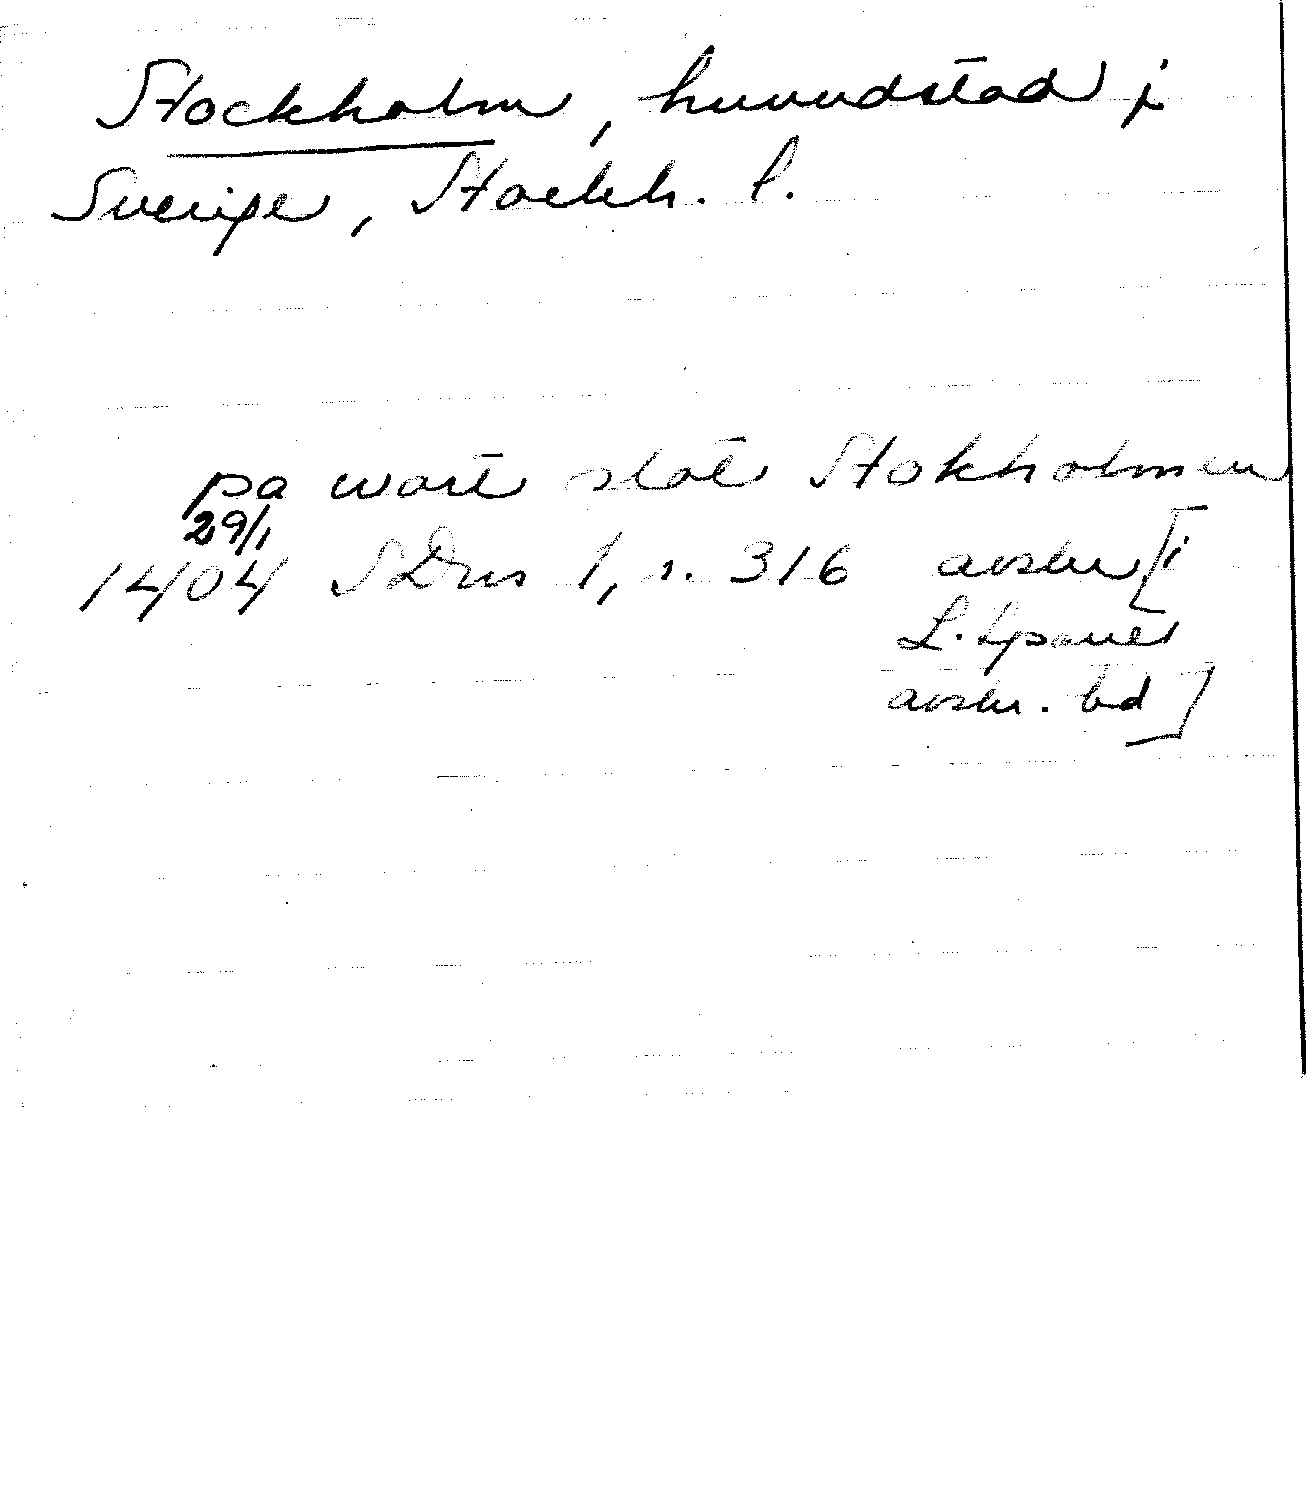 Stockholm, huvudstad i
Sverige, Stockh. l.
pa wart slot Stokholmen
29/1
1404 SDns 1, s. 316 avskr [i
L. Sparres
avskr. bd]